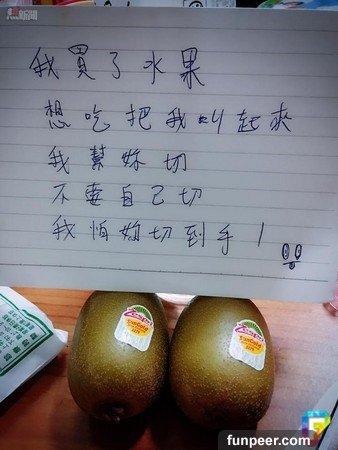 新聞
我買了水果
想吃把我叫起來
我幫妳切
不要自己切
我怕妳切到手！
Zespri
SunGold
funpeer.com